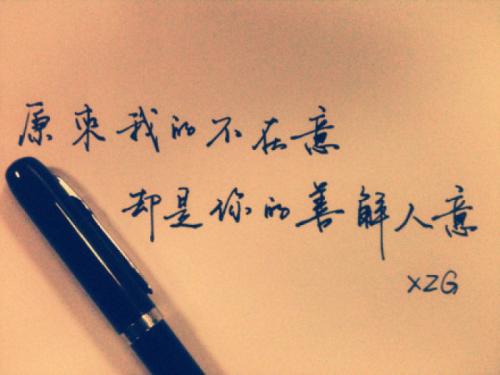 原来我的不在意
却是你的善解人意
XZG